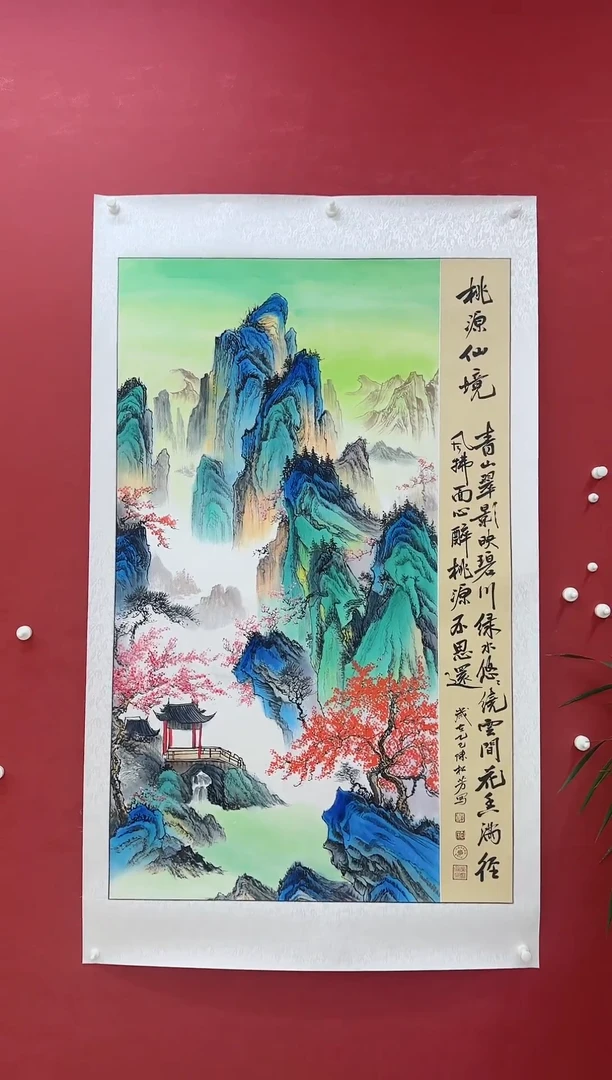 桃源仙境
青山翠影映碧川绿水悠悠绕雲間花香满径
风拂面心醉桃源不思還
歲在乙巳陈松芳写